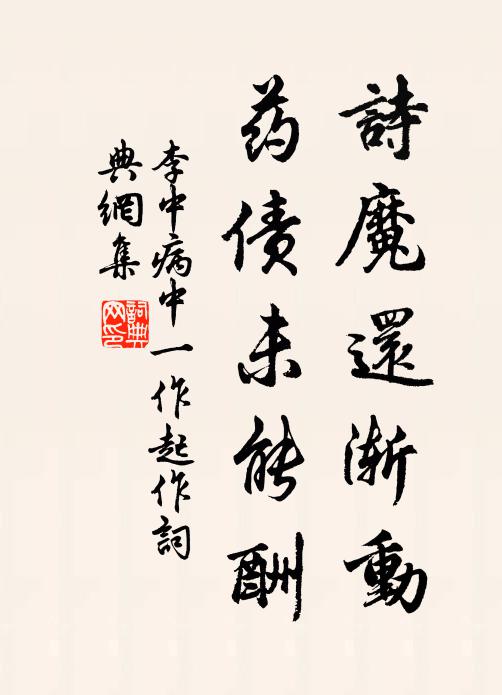 詩魔還漸動
药债未能酬
李中病中一作起作詞
典網集
詞典网印